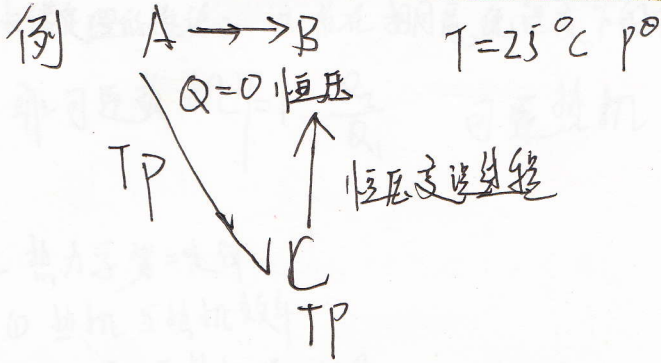 例 A →→ B T=25°C p⊖
Q=0 恒压
TP 恒压变温过程
C
TP